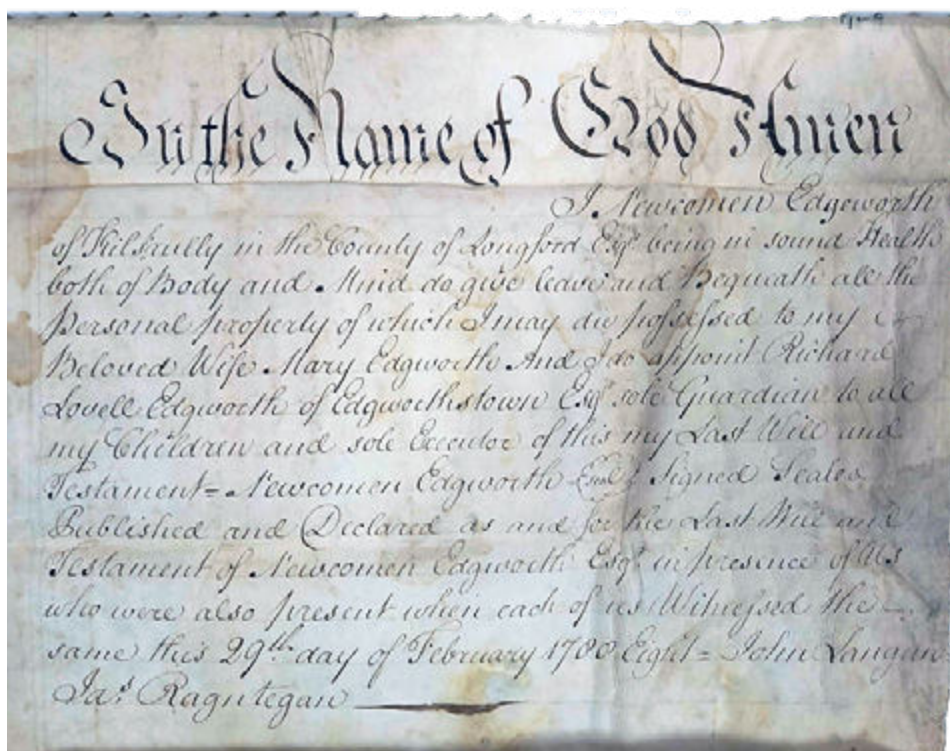 In the Name of God Amen
I Newcomen Edgeworth
of Kilshrully in the County of Longford Esqr being in sound Health
both of Body and Mind do give leave and Bequeath all the
Personal property of which I may die possessed to my
Beloved Wife Mary Edgworth And I do appoint Richard
Lovell Edgworth of Edgworthstown Esqr sole Guardian to all
my Children and sole Executor of this my Last Will and
Testament = Newcomen Edgworth Seal Signed Sealed
Published and Declared as and for the Last Will and
Testament of Newcomen Edgworth Esqr in presence of Us
who were also present when each of us Witnessed the
same this 29th day of February 1780 Eight = John Langan
Jas